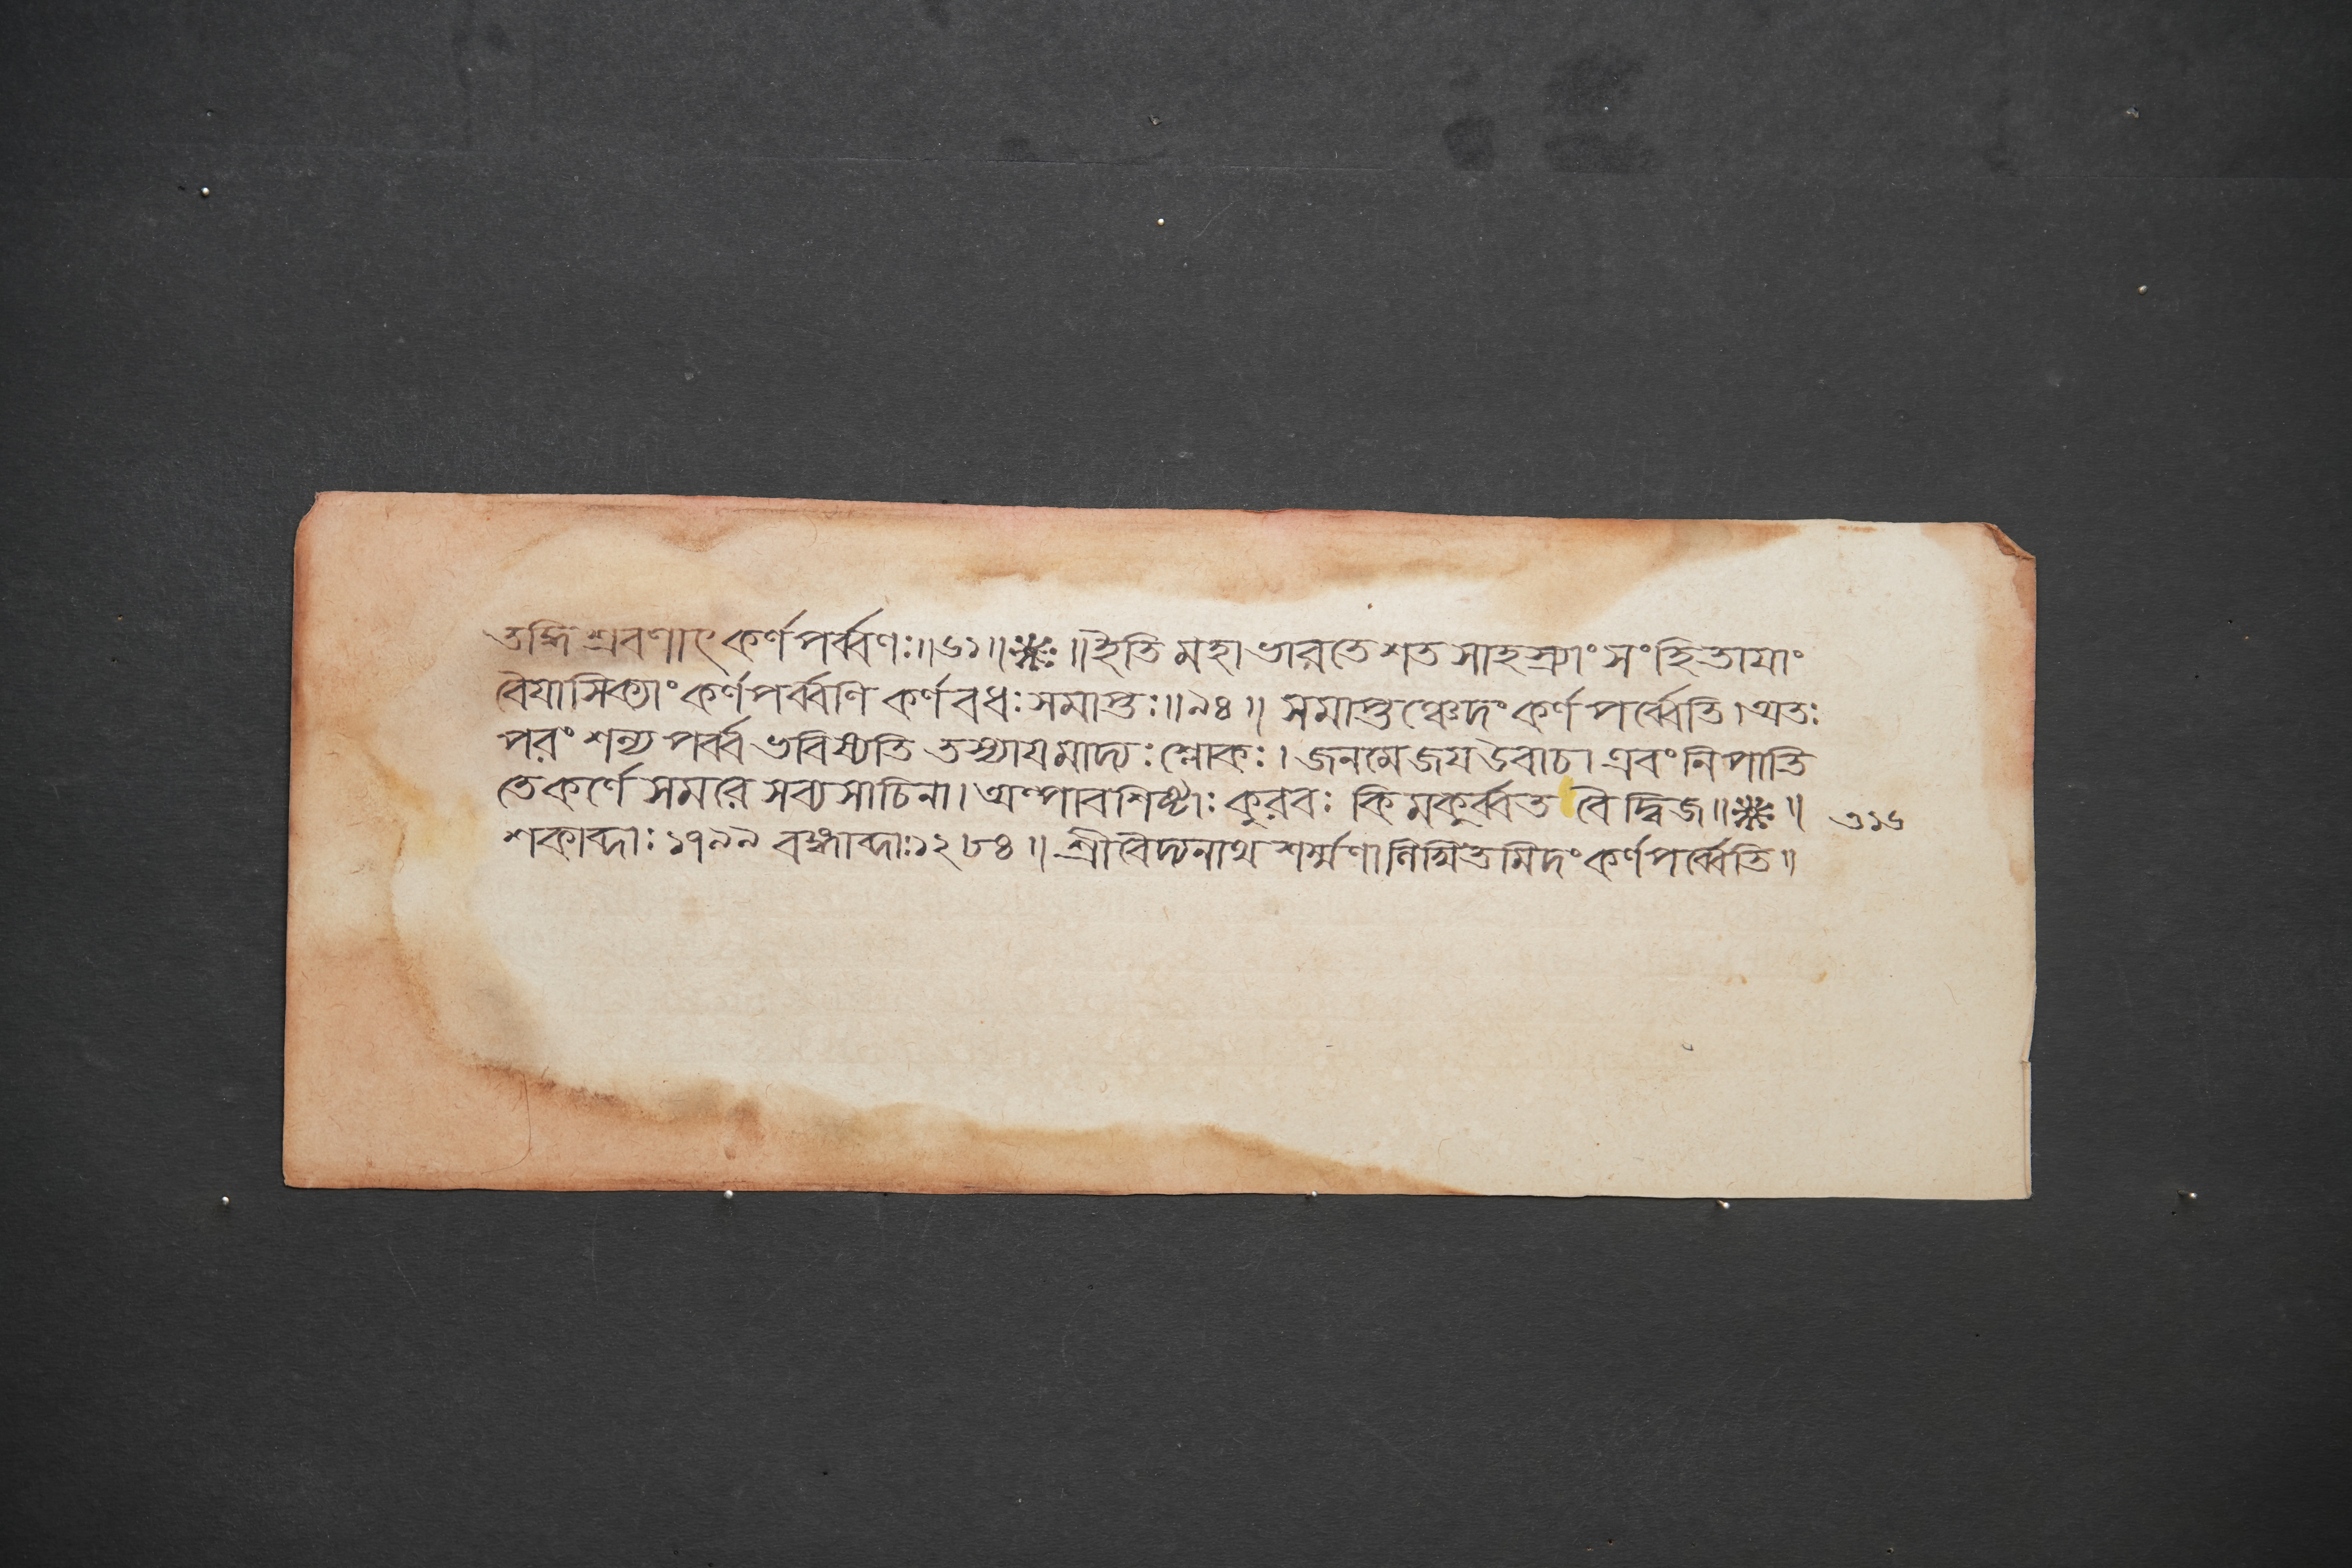 তদ্ধি শ্রবণাৎ কর্ণপর্ব্বণঃ॥৬১॥❋॥ইতি মহাভারতে শতসাহস্র্যাং সংহিতাযাং
বৈযাসিক্যাং কর্ণপর্ব্বণি কর্ণবধঃ সমাপ্তঃ॥৯৪॥ সমাপ্তঞ্চেদং কর্ণপর্ব্বেতি।অতঃ
পরং শল্য পর্ব্ব ভবিষ্যতি তস্যাযমাদ্যঃ শ্লোকঃ। জনমেজয উবাচ। এবং নিপাতি
তে কর্ণে সমরে সব্যসাচিনা। অল্পাবশিষ্টাঃ কুরবঃ কিমকুর্ব্বত বৈ দ্বিজ॥❋॥ ৩১৬
শকাব্দাঃ ১৭৯৯ বঙ্গাব্দাঃ১২৮৪॥ শ্রীবৈদ্যনাথ শর্ম্মণা মিদং কর্ণপর্ব্বেতি॥